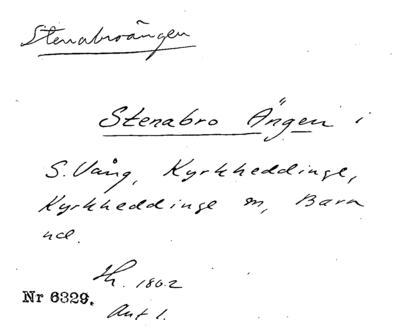 Stenabroängen
Stenabro Ängen i
S. Vång, Kyrkheddinge,
Kyrkheddinge sn, Bara
hd.
Sk. 1802
Nr 6329.
Akt 1.